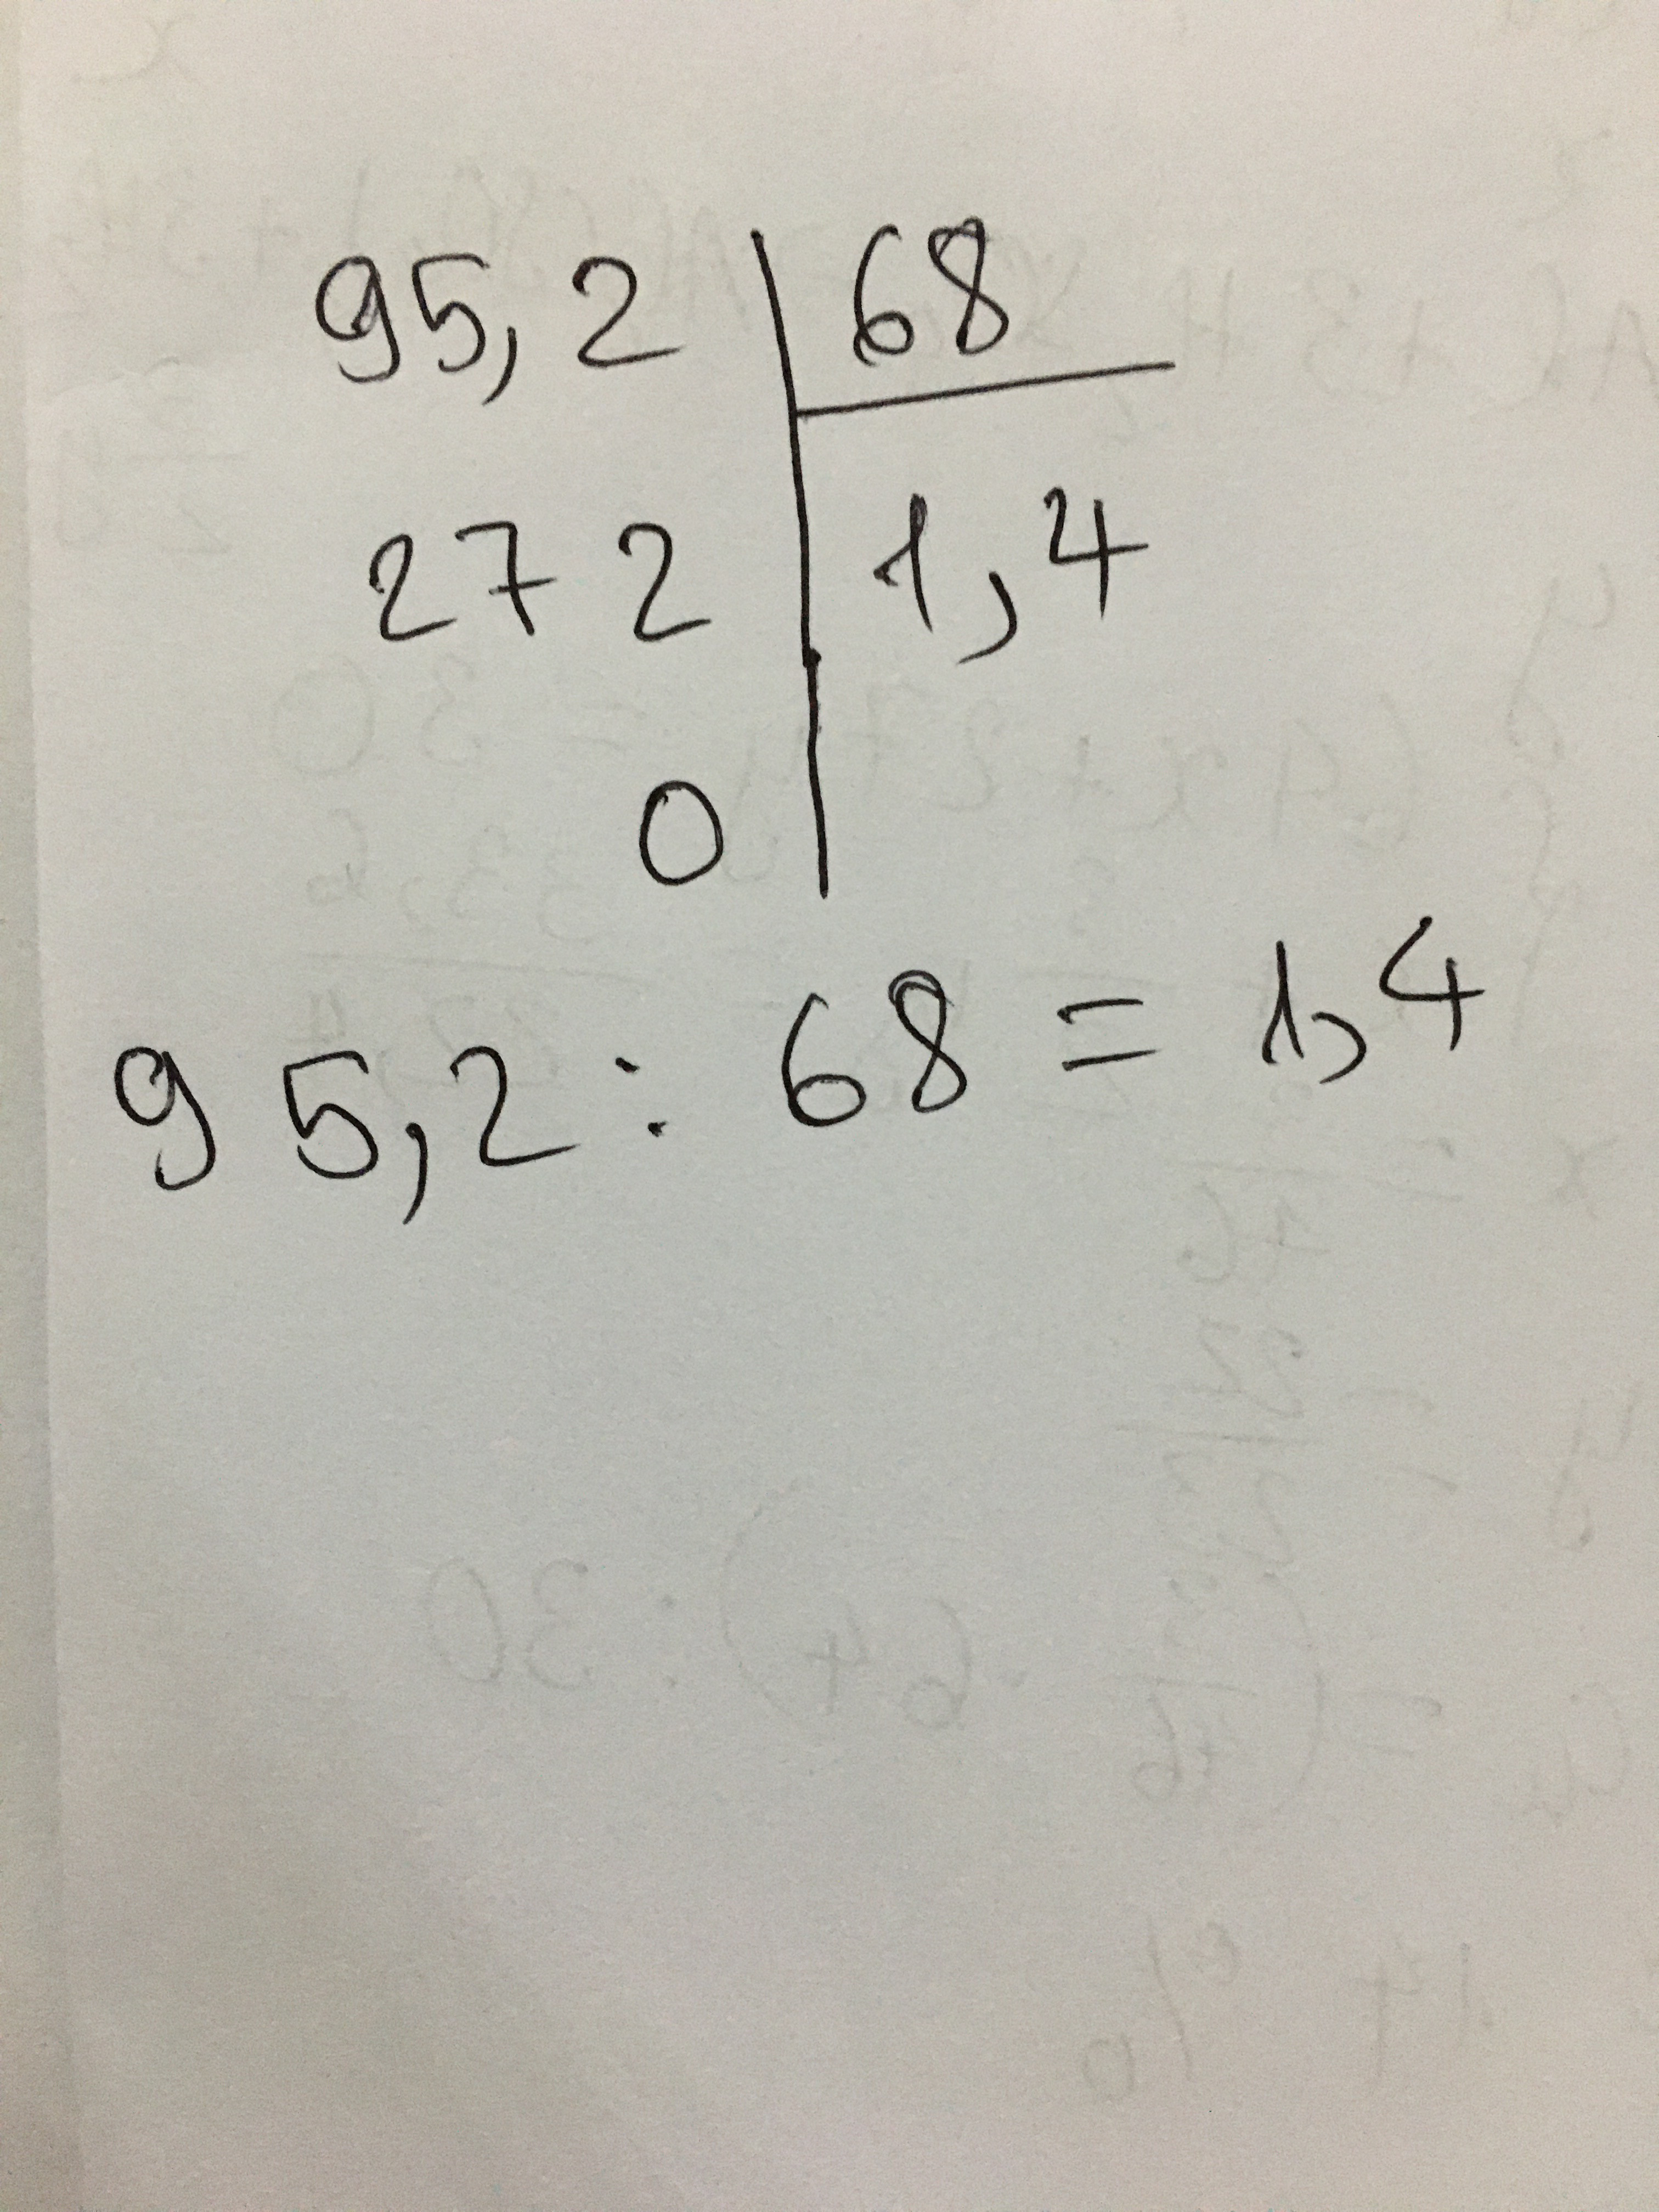 95,2 68
272 1,4
0
95,2 : 68 = 1,4